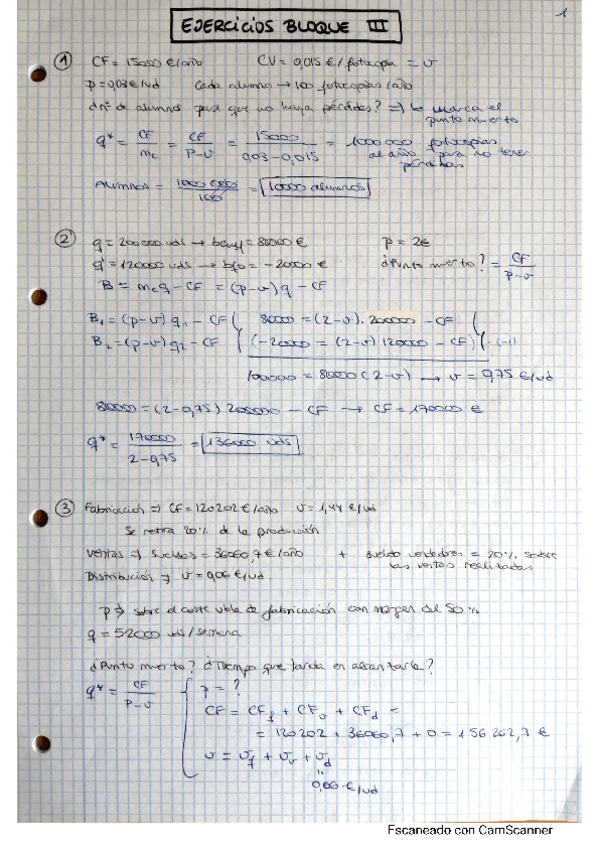 1
EJERCICIOS BLOQUE III
① CF = 15000 €/año CV = 0,015 €/fotocopia = v
p = 0,03 €/ud Cada alumno → 100 fotocopias/año
¿nº de alumnos para que no haya pérdidas? ⇒ lo marca el
punto muerto
q* = CF/mc = CF/p-v = 15000/0,03-0,015 = 1000000 fotocopias
al año para no tener
pérdidas
Alumnos = 1000000/100 = 10000 alumnos
② q = 200000 uds → benef = 80000 € p = 2€
q' = 120000 uds → bfo = -20000 € ¿Punto muerto? = CF/p-v
B = mc q - CF = (p-v) q - CF
B1 = (p-v) q1 - CF { 80000 = (2-v). 200000 - CF
B2 = (p-v) q2 - CF { (-20000 = (2-v) 120000 - CF) · (-1)
100000 = 80000 (2-v) → v = 0,75 €/ud
80000 = (2-0,75) 200000 - CF → CF = 170000 €
q* = 170000/2-0,75 = 136000 uds
③ Fabricación ⇒ CF = 120202 €/año v = 1,44 €/ud
Se retira 20% de la producción
Ventas ⇒ Sueldos = 36060,7 €/año + sueldo vendedores = 20% sobre
las ventas realizadas
Distribución ⇒ v = 0,06 €/ud.
p ⇒ sobre el coste vble de fabricación con margen del 50%
q = 52000 uds/semana
¿Punto muerto? ¿Tiempo que tarda en alcanzarla?
q* = CF/p-v { p = ?
CF = CFf + CFv + CFd =
= 120202 + 36060,7 + 0 = 156262,7 €
v = vf + vv + vd
"
0,06 €/ud
Escaneado con CamScanner